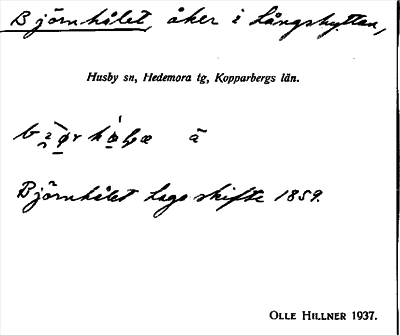 Björnhålet, åker i Långshyttan,
Husby sn, Hedemora tg, Kopparbergs län.
ä
Björnhålet Laga skifte 1859.
OLLE HILLNER 1937.